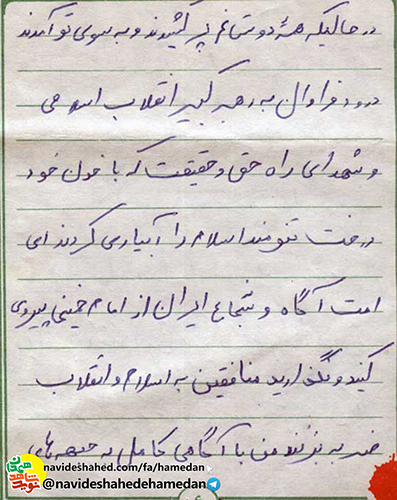 در حالیکه همهٔ دوستانم پر کشیدند و به سوی تو آمدند
درود فراوان به رهبر کبیر انقلاب اسلامی
و شهدای راه حق و حقیقت که با خون خود
درخت تنومند اسلام را آبیاری کردند ای
امت آگاه و شجاع ایران از امام خمینی پیروی
کنید و نگذارید منافقین به اسلام و انقلاب
ضربه بزنند من با آگاهی کامل به جبهه های
navideshahed.com/fa/hamedan
@navideshahedehamedan